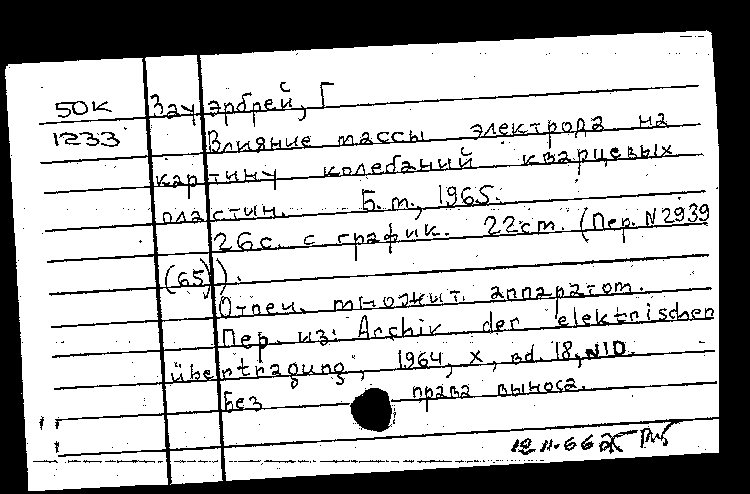 50К Зауэрбрей, Г
1233 Влияние массы электрода на
картину колебаний кварцевых
пластин. Б.т., 1965.
26с. с график. 22ст. (Пер. N2939
(65)).
Отпеч. множит. аппаратом.
Пер. из: Archiv der elektrischen
übertragung, 1964, X, Bd. 18, N10.
Без права выноса.
12.11.66